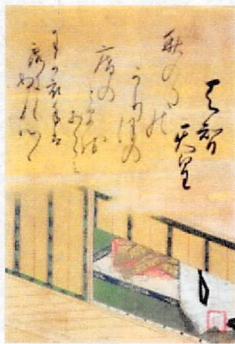 天智
天皇
秋の田の
かりほの
庵の
とまを
あらみ
わか衣手は
露にぬれつゝ